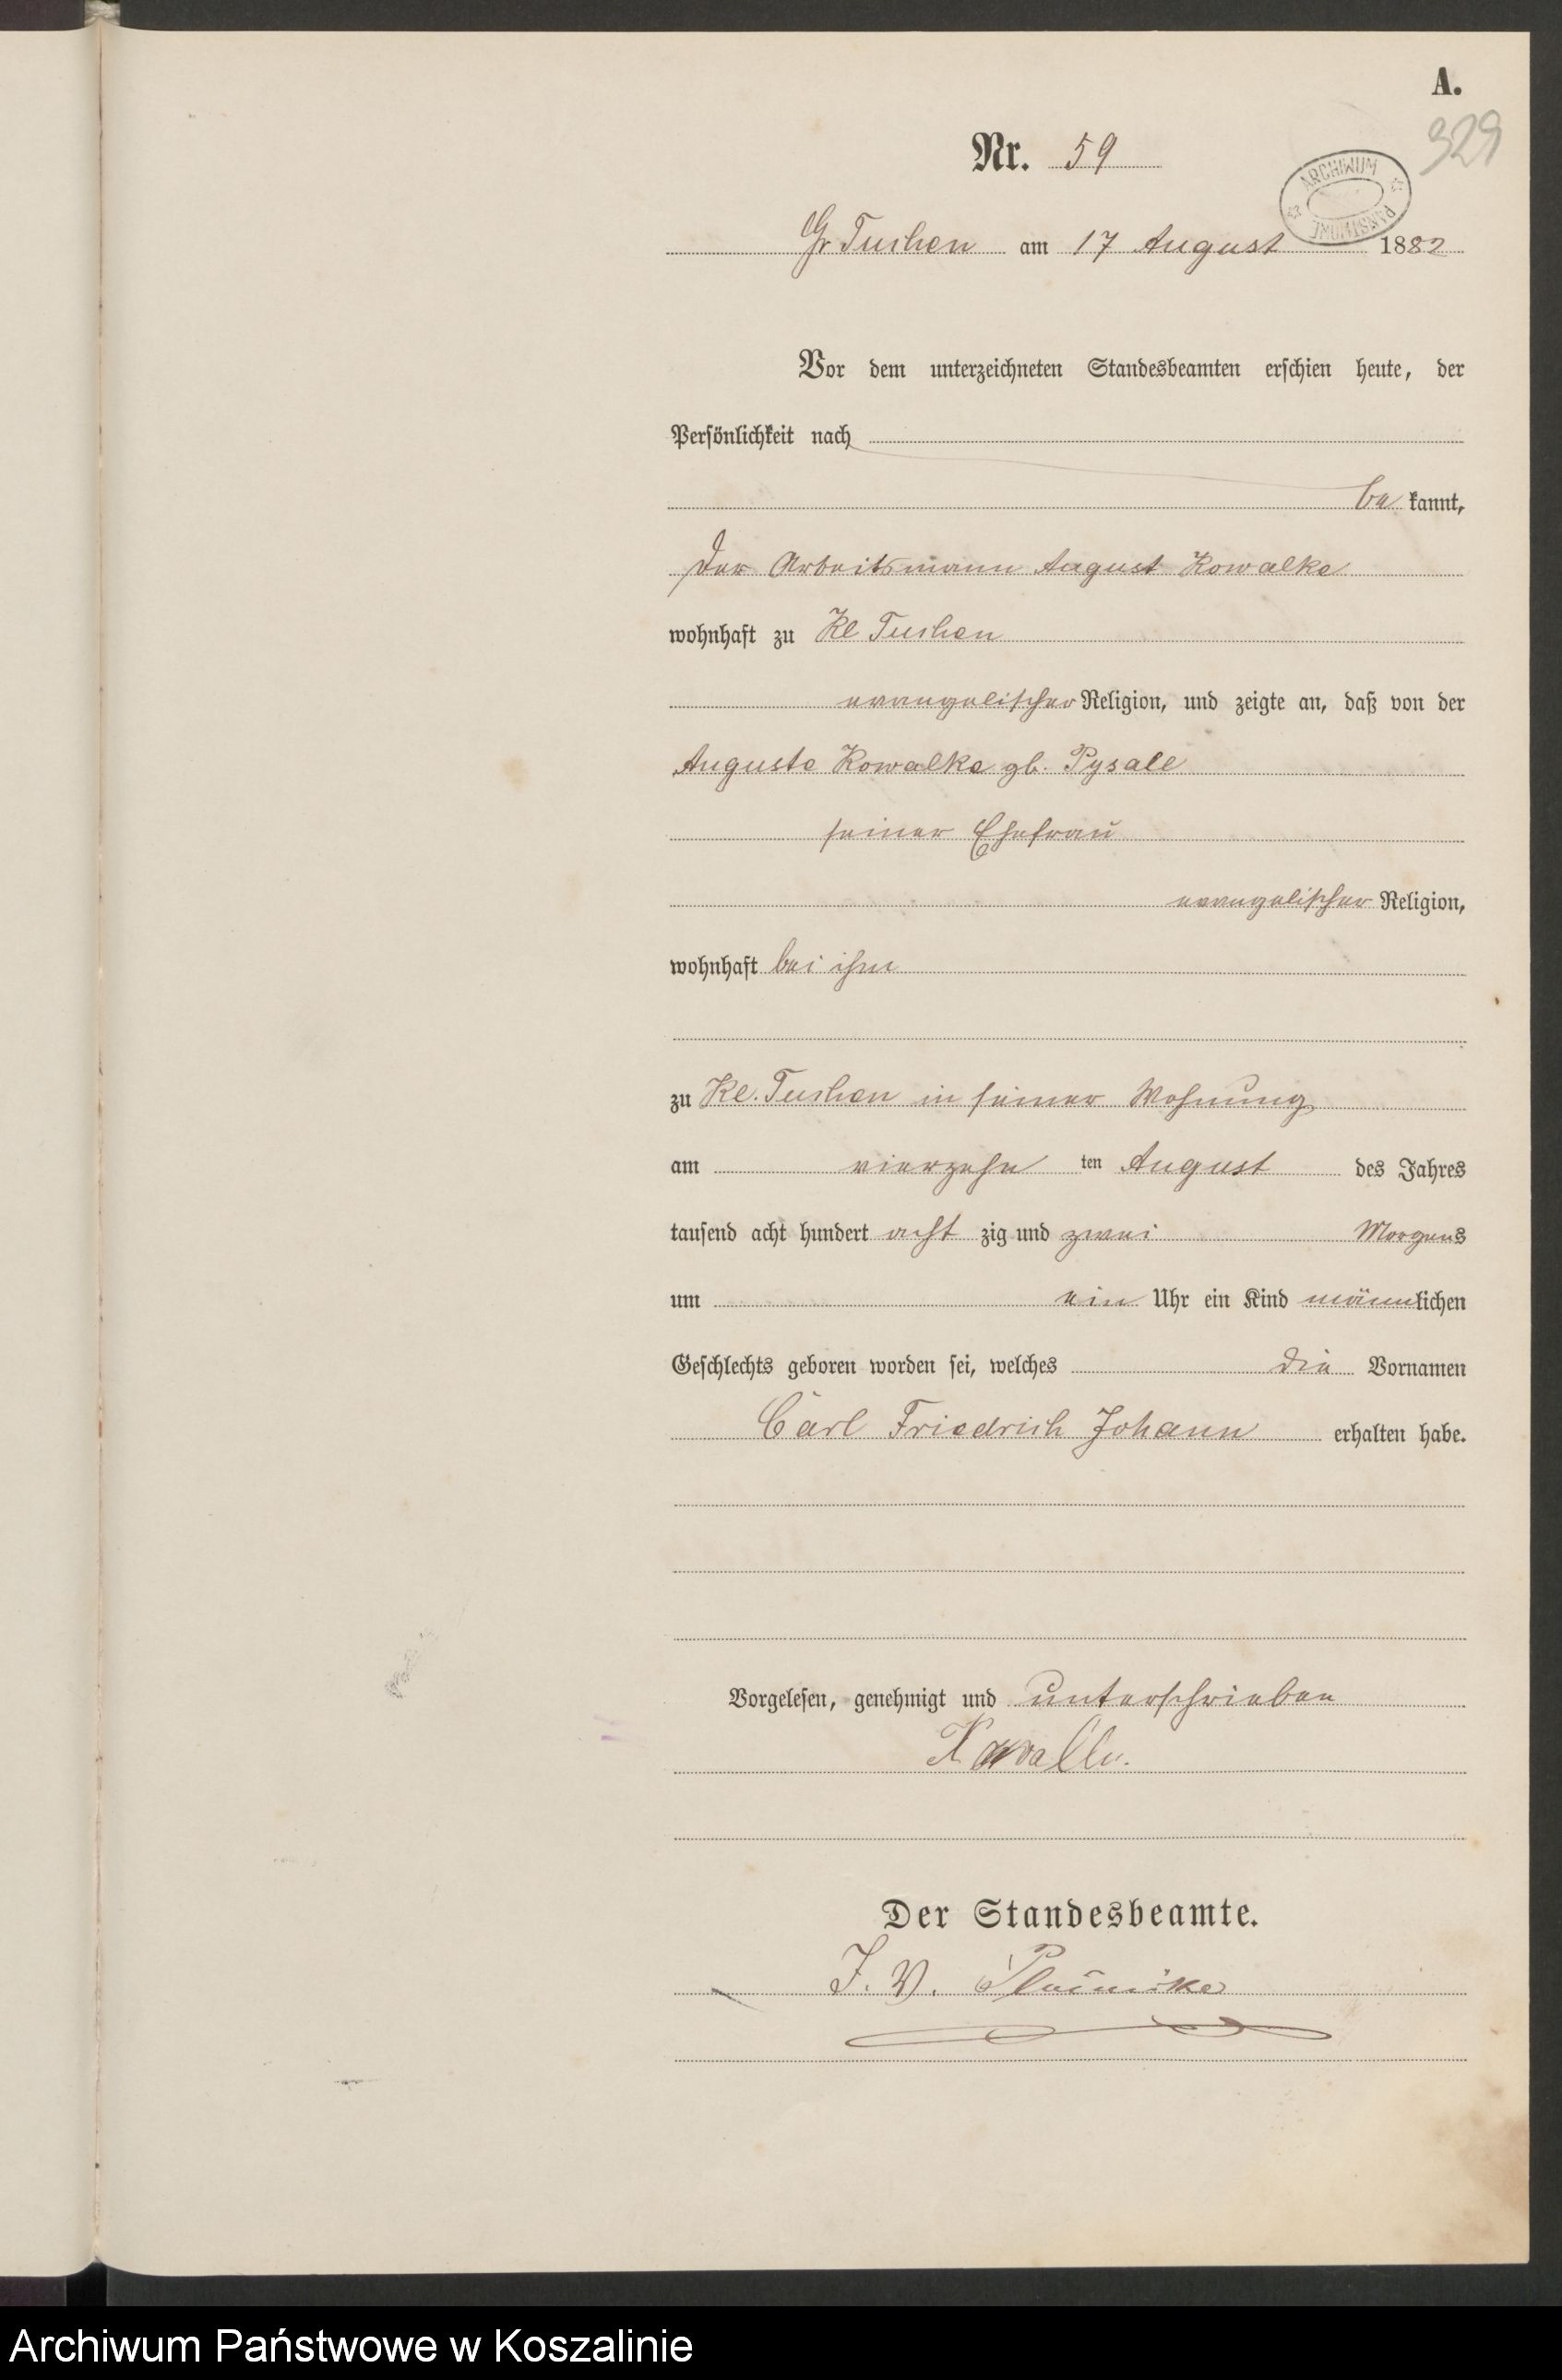 A.
329
Nr. 59
ARCHIWUM PAŃSTWOWE
Gr Tuchen am 17 August 1882
Vor dem unterzeichneten Standesbeamten erschien heute, der
Persönlichkeit nach
bekannt,
der Arbeitsmann August Kowalke
wohnhaft zu Kl Tuchen
evangelischer Religion, und zeigte an, daß von der
Auguste Kowalke gb. Pysall
seiner Ehefrau
evangelischer Religion,
wohnhaft bei ihm
zu Kl. Tuchen in seiner Wohnung
am vierzehn ten August des Jahres
tausend acht hundert acht zig und zwei Morgens
um ein Uhr ein Kind männlichen
Geschlechts geboren worden sei, welches die Vornamen
Carl Friedrich Johann erhalten habe.
Vorgelesen, genehmigt und unterschrieben
Der Standesbeamte.
J. V.
Archiwum Państwowe w Koszalinie